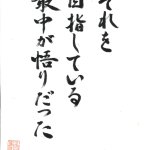 それを
目指している
最中が悟りだった